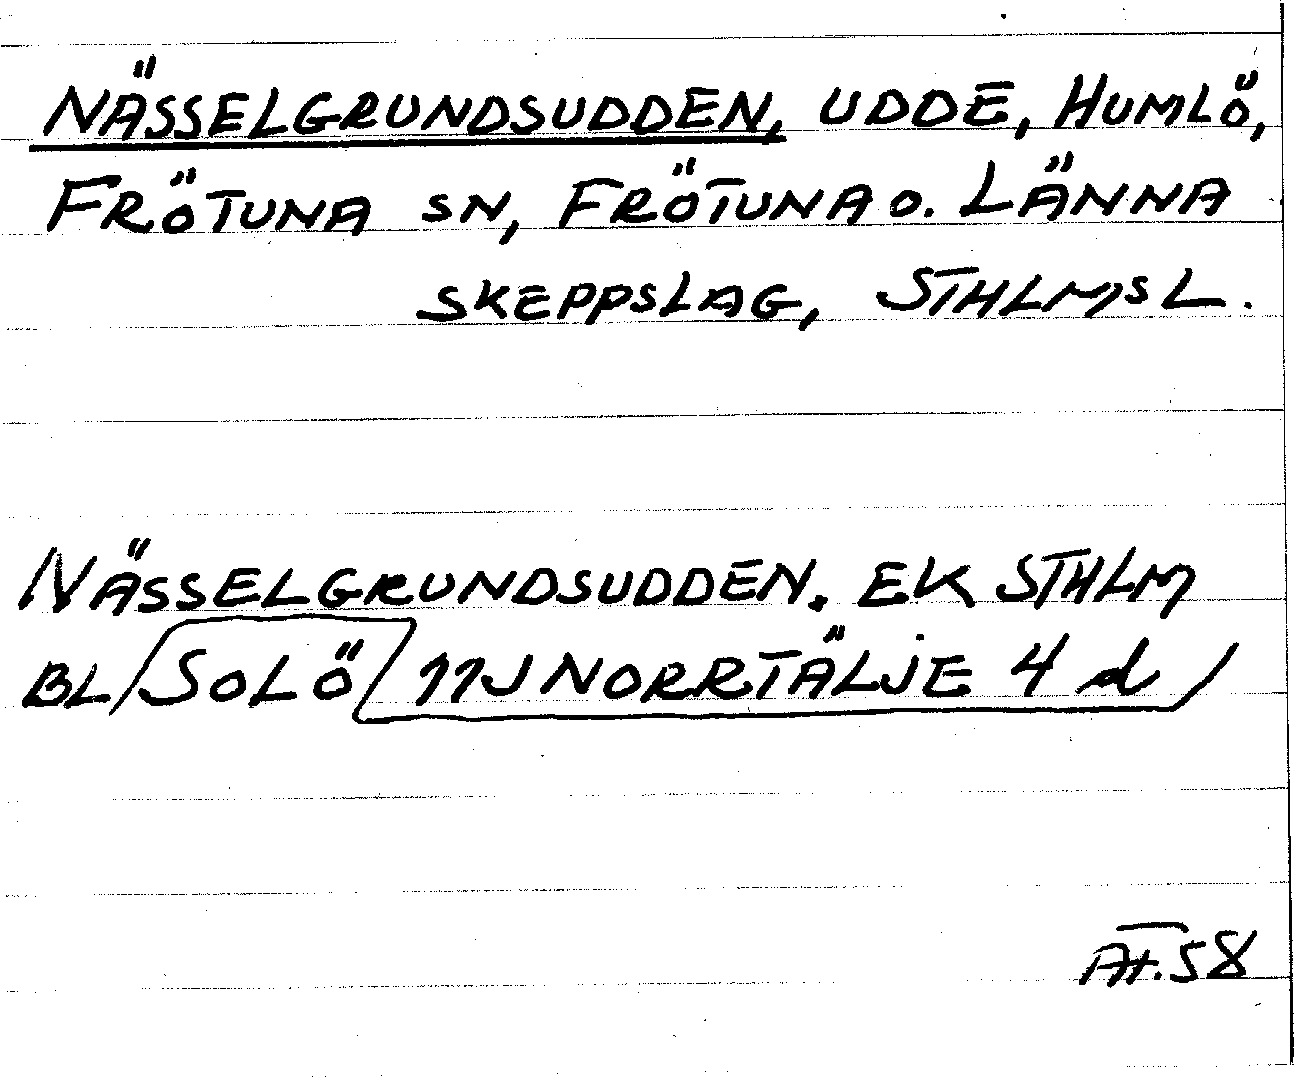 NÄSSELGRUNDSUDDEN, UDDE, HUMLÖ,
FRÖTUNA SN, FRÖTUNA O. LÄNNA
SKEPPSLAG, STHLMS L.
NÄSSELGRUNDSUDDEN. EK STHLM
BL SOLÖ 11J NORRTÄLJE 4 d
58